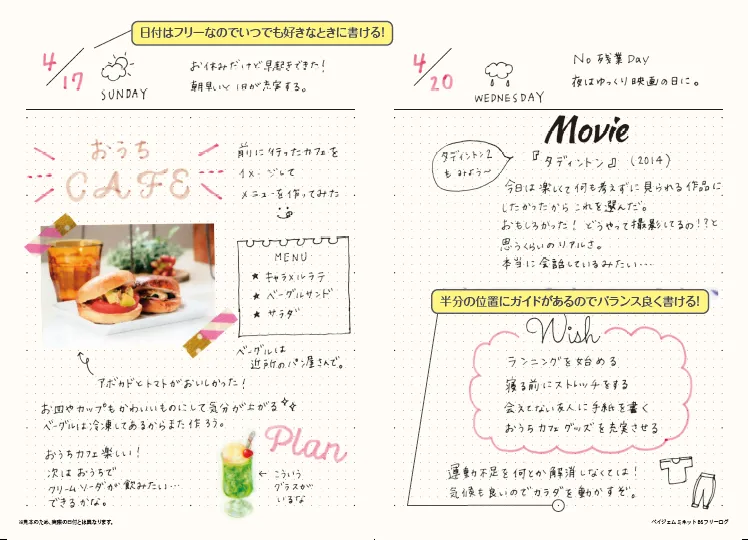 日付はフリーなのでいつでも好きなときに書ける!
4/17
SUNDAY
お休みだけど早起きできた!
朝早いと1日が充実する。
おうち
CAFE
前に行ったカフェを
イメージして
メニューを作ってみた
MENU
★ キャラメルラテ
★ ベーグルサンド
★ サラダ
ベーグルは
近所のパン屋さんで。
アボカドとトマトがおいしかった!
お皿やカップもかわいいものにして気分が上がる
ベーグルは冷凍してあるからまた作ろう。
おうちカフェ楽しい!
次はおうちで
クリームソーダが飲みたい…
できるかな。
Plan
← こういう
グラスが
いるな
※見本のため、実際の日付とは異なります。
4/20
WEDNESDAY
No 残業 Day
夜はゆっくり映画の日に。
Movie
タディントン2
もみよう〜
『タディントン』(2014)
今日は楽しくて何も考えずに見られる作品に
したかったからこれを選んだ。
おもしろかった! どうやって撮影してるの!?と
思うくらいのリアルさ。
本当に会話しているみたい…
半分の位置にガイドがあるのでバランス良く書ける!
Wish
ランニングを始める
寝る前にストレッチをする
会えてない友人に手紙を書く
おうちカフェグッズを充実させる
運動不足を何とか解消しなくては!
気候も良いのでカラダを動かすぞ。
ペイジェムミネット B6フリーログ